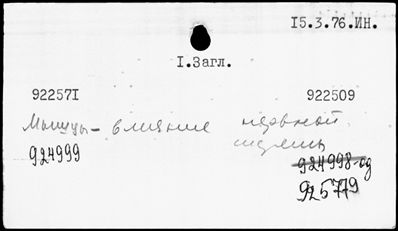 15.3.76.ИН.
I.Загл.
922571 922509
Мышцы - влияние нервной
системы
924999 924998-од
925779